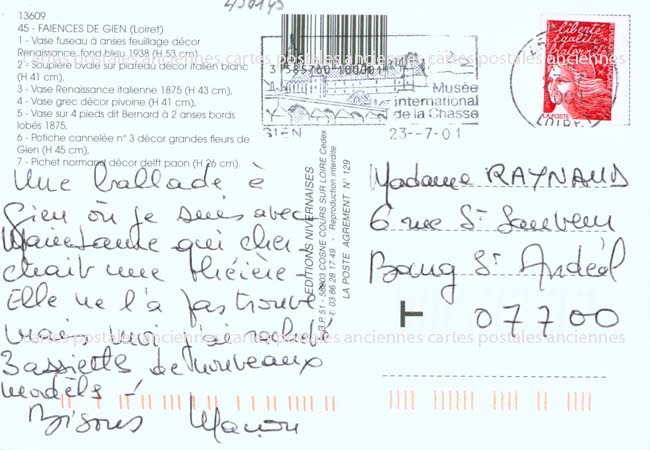 430145
13609
45 - FAIENCES DE GIEN (Loiret)
1 - Vase fuseau à anses feuillage décor
Renaissance, fond bleu 1938 (H 53 cm),
2 - Soupière ovale sur plateau décor italien blanc
(H 41 cm),
3 - Vase Renaissance italienne 1875 (H 43 cm),
4 - Vase grec décor pivoine (H 41 cm),
5 - Vase sur 4 pieds dit Bernard à 2 anses bords
lobés 1875,
6 - Potiche cannelée n° 3 décor grandes fleurs de
Gien (H 45 cm),
7 - Pichet normand décor delft paon (H 26 cm).
Musée
international
de la Chasse
GIEN 23--7-01
Liberté
Egalité
Fraternité
LA POSTE
LOIRET
cartes postales anciennes cartes postales anciennes cartes postales anciennes
Une ballade à
Gien où je suis avec
qui cher
chait une théière!
Elle ne l'a pas trouvé
mais moi j'ai racheté
3 assiettes de nouveaux
modèls!
Bisous Manon
EDITIONS NIVERNAISES
B.P. 51 - 58203 COSNE COURS SUR LOIRE Cedex
03 86 28 17 49 - Reproduction interdite
LA POSTE AGREMENT N° 129
Madame RAYNAUD
6 rue St Sauveur
Bourg St Andéol
07700
cartes postales anciennes cartes postales anciennes cartes postales anciennes